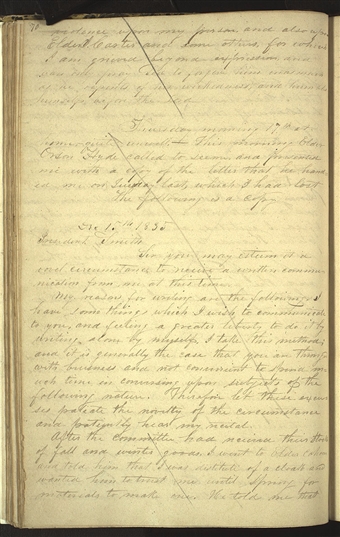 violence upon my person and also upon
Elder Carter and some others, for which
I am grieved beyond expression and
and
Thursday morning 17th at
home
This morning Elder
Orson Hyde called to see me and presented
me with a copy of the letter that he hand
ed me on Tuesday last, which I had lost
The following is a Copy
Dec 15th 1835
President Smith
Sir you may esteem it a
novel circumstance to receive a written commu-
nication from me at this time.
My reasons for writing are the following. I
have some things which I wish to communicate
to you, and feeling a greater liberty to do it by
writing alone by myself, I take this method;
and it is generally the case that you are throng
ed with business and not convenient to spend m
uch time in conversing upon subjects of the
following nature. Therefore let these excu
ses paliate the novelty of the circumstance
and patiently hear my recital.
After the Committee had received their stock
of fall and winter goods, I went to Elder Cahoon
and told him that I was destitute of a cloak and
wanted him to trust me until Spring for
materials to make one. He told me that